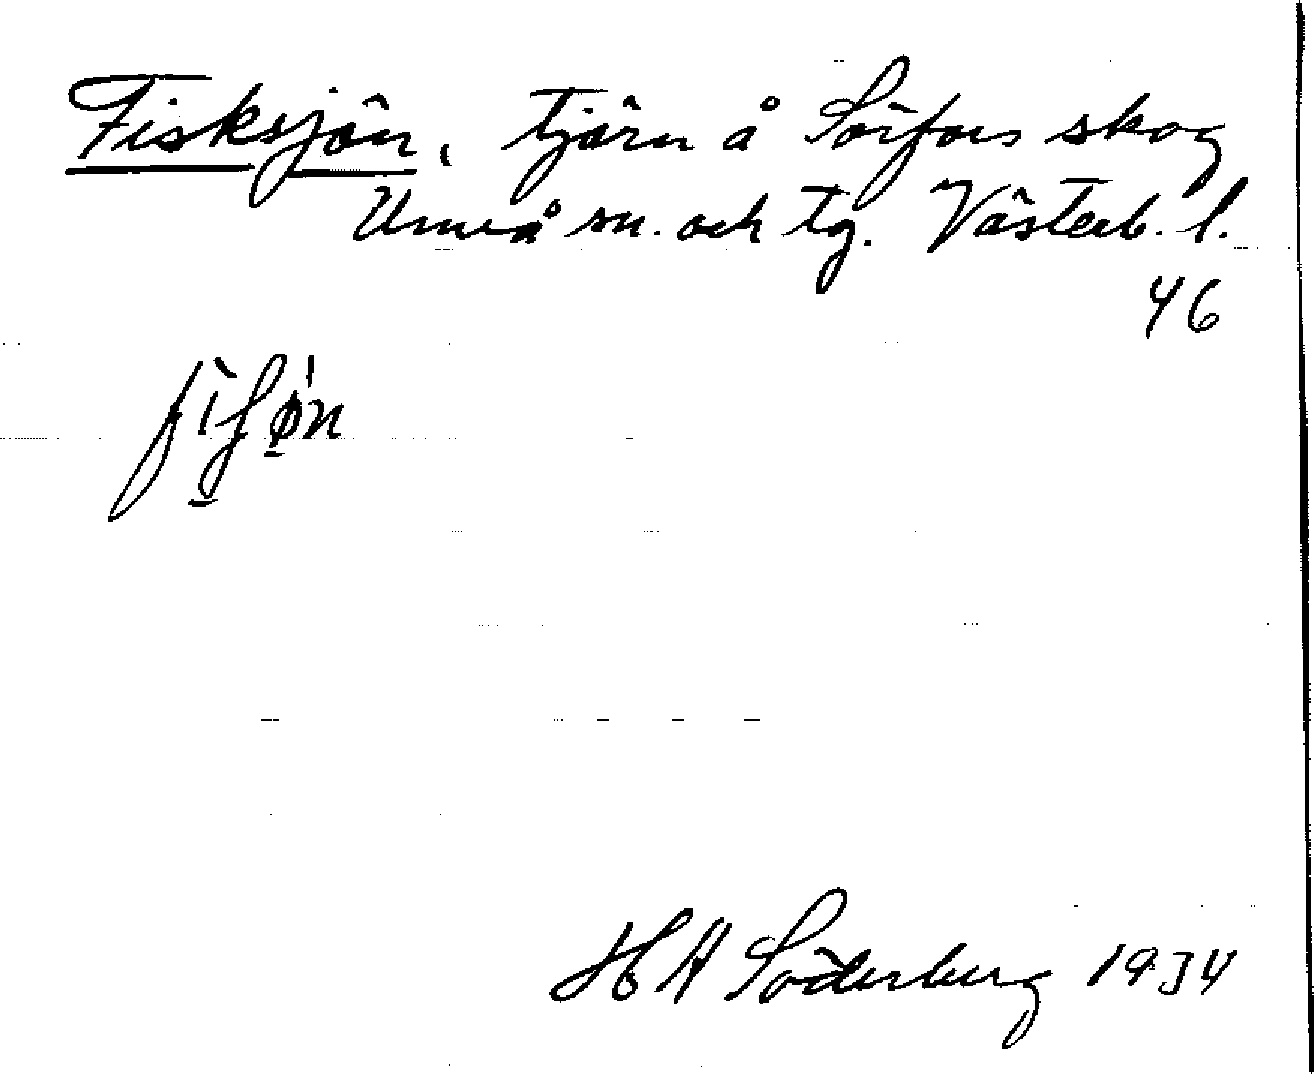 Fisksjön, tjärn å Sörfors skog
Umeå sn. och tg. Västerb. l.
46
H A Söderberg 1934